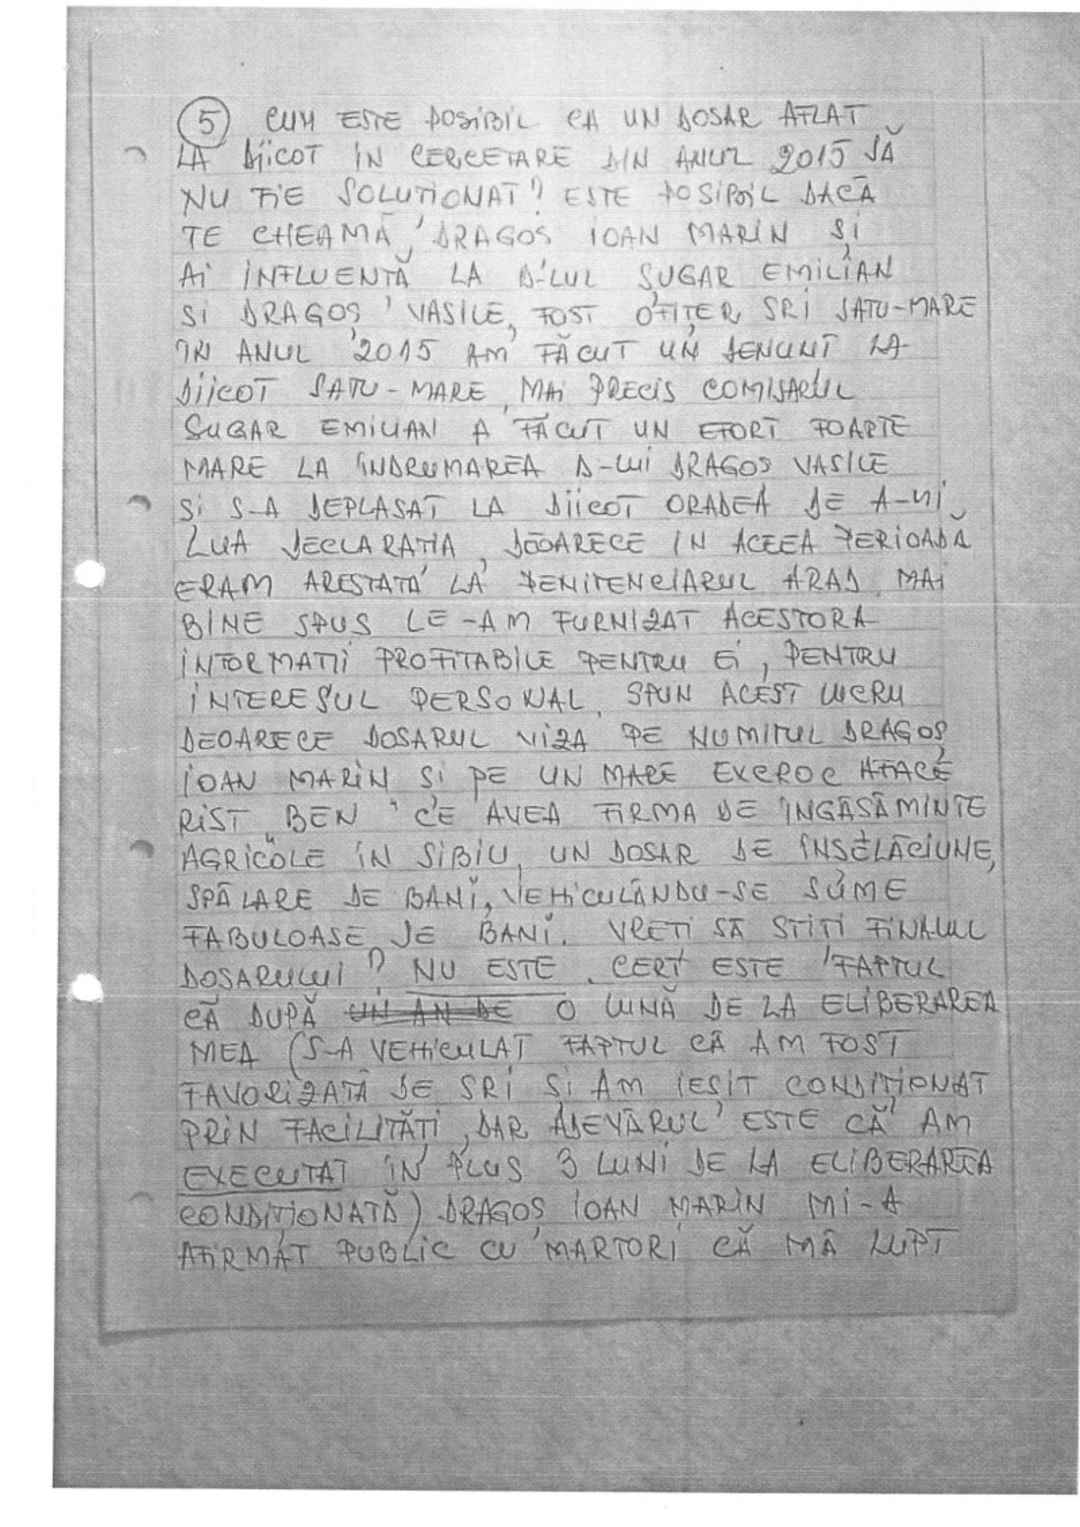 5 CUM ESTE POSIBIL CA UN DOSAR AFLAT
LA DIICOT IN CERCETARE DIN ANUL 2015 SĂ
NU FIE SOLUTIONAT? ESTE POSIBIL DACĂ
TE CHEAMĂ, DRAGOȘ IOAN MARIN ȘI
AI INFLUENȚĂ LA D-LUL SUGAR EMILIAN
SI DRAGOȘ VASILE, FOST OFIȚER SRI SATU-MARE
IN ANUL 2015 AM FĂCUT UN DENUNȚ LA
DIICOT SATU-MARE, MAI PRECIS COMISARUL
SUGAR EMILIAN A FĂCUT UN EFORT FOARTE
MARE LA ÎNDRUMAREA D-LUI DRAGOȘ VASILE
SI S-A DEPLASAT LA DIICOT ORADEA DE A-MI
LUA DECLARATIA, DEOARECE IN ACEEA PERIOADĂ
ERAM ARESTATĂ LA PENITENCIARUL ARAD. MAI
BINE SPUS LE-AM FURNIZAT ACESTORA
INFORMATII PROFITABILE PENTRU EI, PENTRU
INTERESUL PERSONAL. SPUN ACEST LUCRU
DEOARECE DOSARUL VIZA PE NUMITUL DRAGOȘ
IOAN MARIN SI PE UN MARE EXCROC AFACE
RIST „BEN" CE AVEA FIRMA DE INGĂSĂMINTE
AGRICOLE IN SIBIU, UN DOSAR DE ÎNSELĂCIUNE,
SPĂLARE DE BANI, VEHICULÂNDU-SE SUME
FABULOASE DE BANI. VRETI SĂ STITI FINALUL
DOSARULUI? NU ESTE. CERT ESTE FAPTUL
CĂ DUPĂ UN AN DE O LUNĂ DE LA ELIBERAREA
MEA (S-A VEHICULAT FAPTUL CĂ AM FOST
FAVORIZATĂ DE SRI ȘI AM IESIT CONDIȚIONAT
PRIN FACILITĂȚI, DAR ADEVĂRUL ESTE CĂ AM
EXECUTAT IN PLUS 3 LUNI DE LA ELIBERAREA
CONDIȚIONATĂ) DRAGOȘ IOAN MARIN MI-A
AFIRMAT PUBLIC CU MARTORI CĂ MĂ LUPT